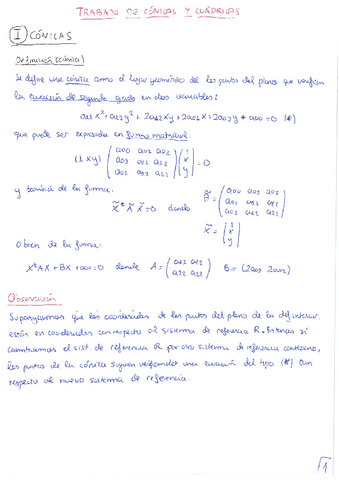 TRABAJO DE CÓNICAS Y CUÁDRICAS
I CÓNICAS
Definición (cónica)
Se define una cónica como el lugar geométrico de los puntos del plano que verifican
la ecuación de segundo grado en dos variables:
a11x²+a22y²+2a12xy+2a01x+2a02y+a00=0 (*)
que puede ser expresada en forma matricial:
(1 x y) (a00 a01 a02
a01 a11 a12
a02 a12 a22) (1
x
y) = 0
y también de la forma:
X̃ᵗ Ã X̃ = 0 donde
(a00 a01 a02
a01 a11 a12
a02 a12 a22)
X̃ = (1
x
y)
O bien de la forma:
XᵗAX + BX + a00 = 0 donde A = (a11 a12
a12 a22) B = (2a01 2a02)
Observación
Supongamos que las coordenadas de los puntos del plano de la def anterior,
están en coordenadas con respecto al sistema de referencia R. Entonces si
cambiamos el sist de referencia R por otro sistema de referencia cartesiano,
los puntos de la cónica siguen verificando una ecuación del tipo (*) con
respecto al nuevo sistema de referencia.
1